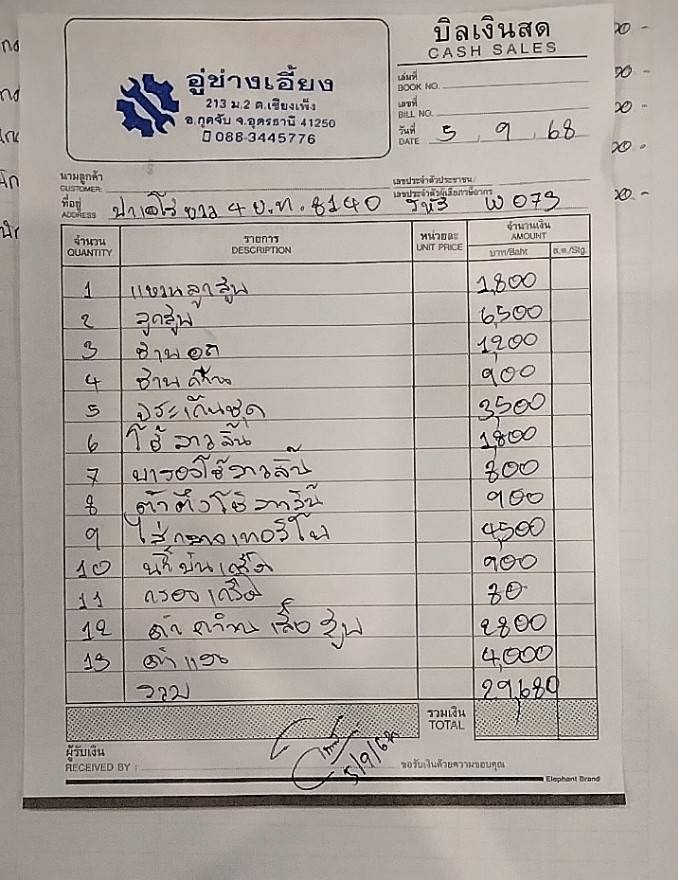 บิลเงินสด
CASH SALES
อู่ช่างเอี้ยง
213 ม.2 ต.เชียงเพ็ง
อ.กุดจับ จ.อุดรธานี 41250
088-3445776
เล่มที่
BOOK NO.
เลขที่
BILL NO.
วันที่
DATE 5 9 68
นามลูกค้า
CUSTOMER
เลขประจำตัวประชาชน
เลขประจำตัวผู้เสียภาษีอากร
ที่อยู่
ADDRESS ปาเจโร ขาว 4 ข.ท. 8140 W 073
จำนวน รายการ หน่วยละ จำนวนเงิน
QUANTITY DESCRIPTION UNIT PRICE AMOUNT
บาท/Baht ส.ต./Stg.
1 แหวนลูกสูบ 1,800
2 ลูกสูบ 6,500
3 ชาบอก 1,200
4 ชาบก้าน 900
5 ประเก็นชุด 3,500
6 โซ่ราวลิ้น 1,800
7 บารองโซ่ราวลิ้น 800
8 ตัวตึงโซ่ราวลิ้น 900
9 ไส้กลางเทอร์โบ 4,500
10 น้ำมันเครื่อง 900
11 กรองเครื่อง 80
12 ค่า เสื้อ สูบ 2800
13 ค่าแรง 4,000
รวม 29,680
รวมเงิน
TOTAL
ผู้รับเงิน
RECEIVED BY :
5/9/68
ขอรับเงินด้วยความขอบคุณ
Elephant Brand